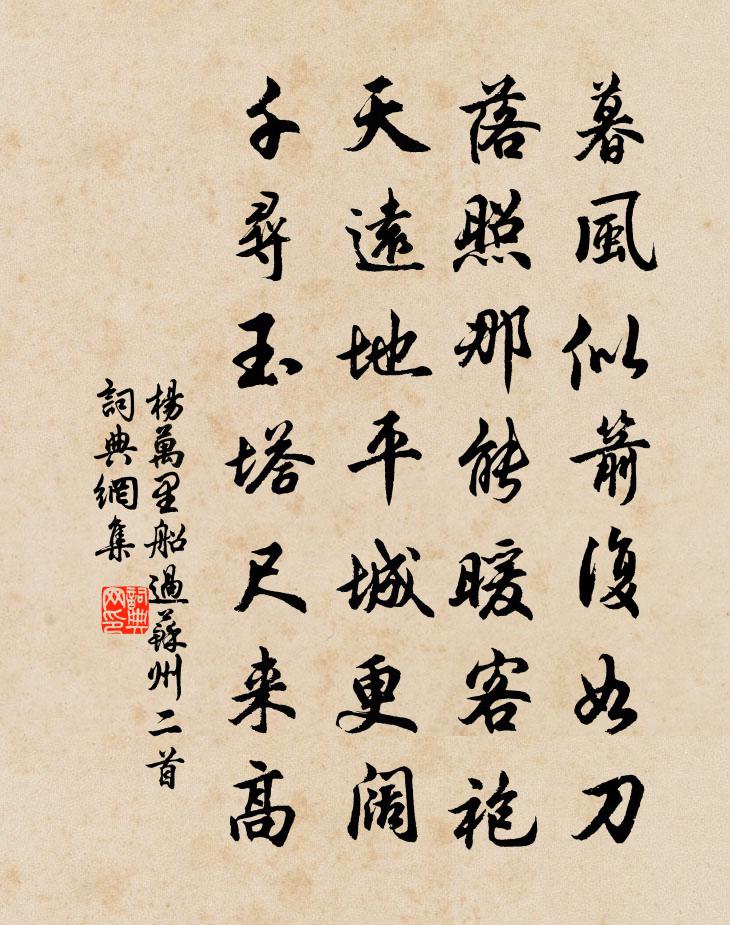 暮風似箭復如刀
落照那能暖客袍
天遠地平城更阔
千尋玉塔尺来高
楊萬里船過蘇州二首
詞典網集
詞典
网印